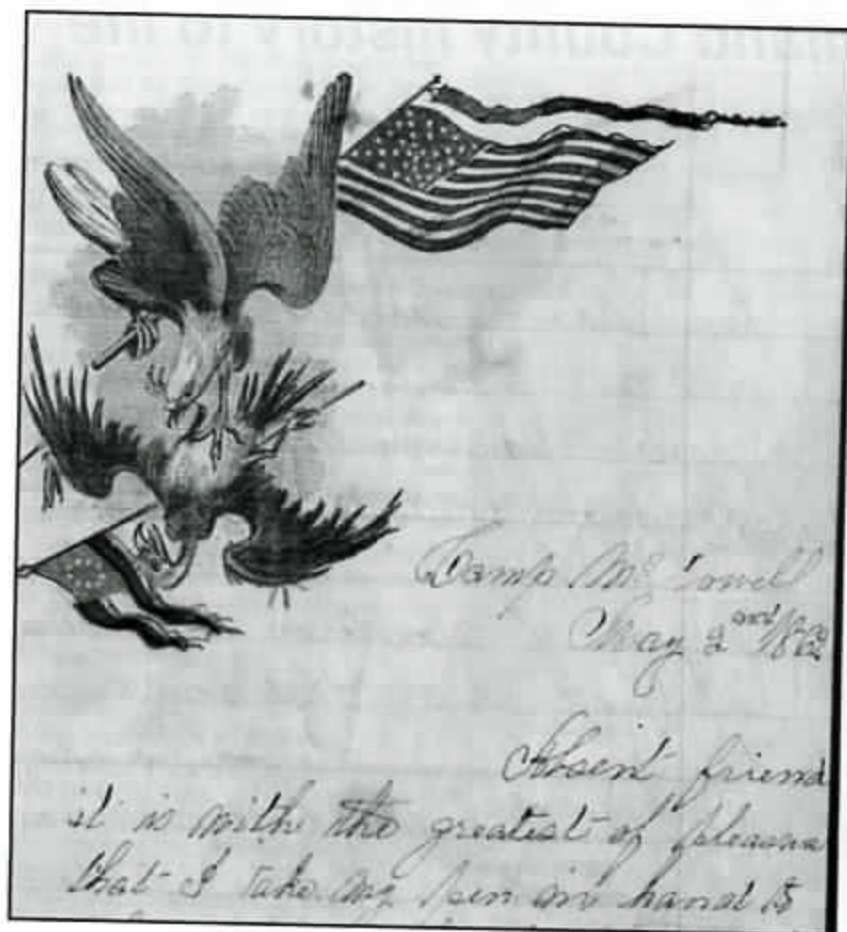 Camp McDowell
May 2nd 1862
Absent friend
it is with the greatest of pleasure
that I take my pen in hand to